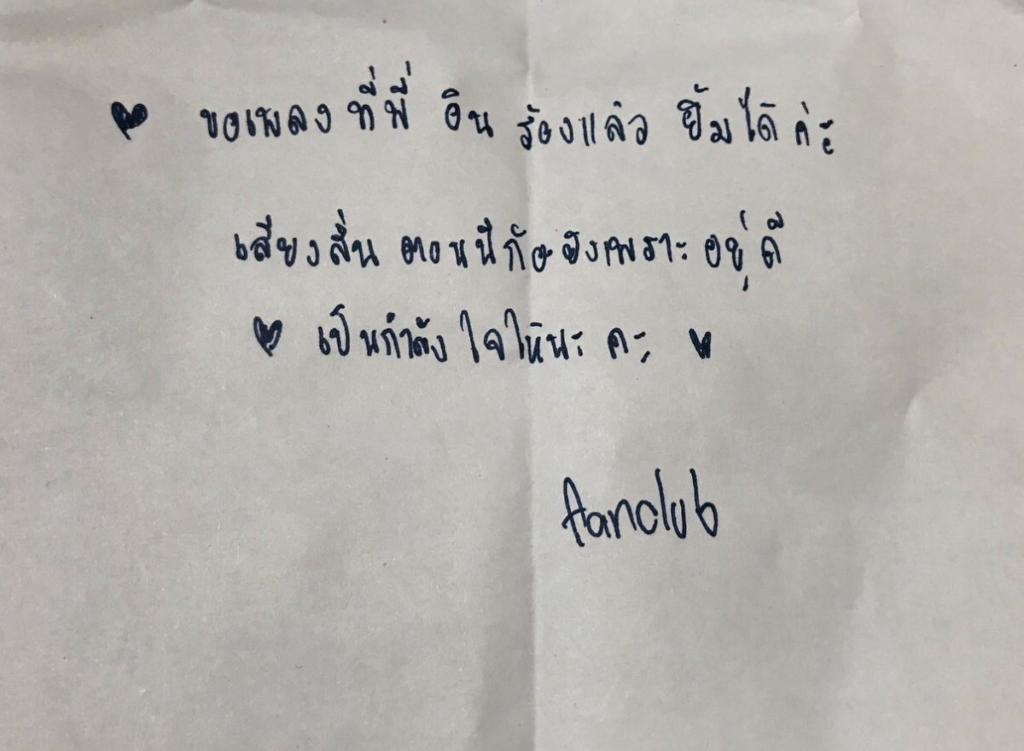 ขอเพลง ที่พี่ อิน ร้องแล้ว ยิ้มได้ ค่ะ
เสียงสั่น ตอนนี้ก้อ ยังเพราะ อยู่ดี
เป็นกำลัง ใจให้นะ คะ
fanclub